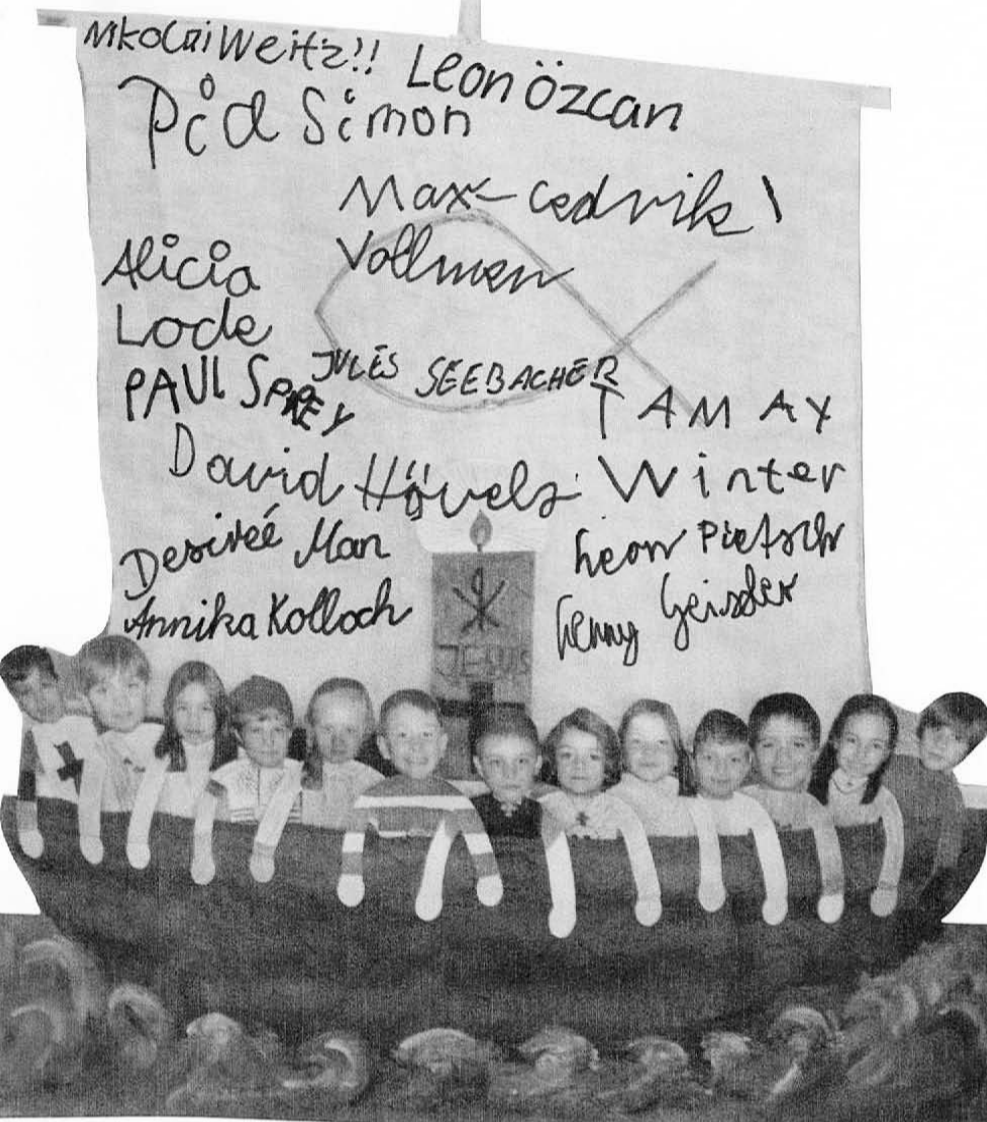 Nikolai Weitz!! Leon Özcan
Pid Simon
Max-Cedrik
Vollmer
Alicia
Lode
JULES SEEBACHER
PAUL SPREY
TAMAY
Winter
David Hövels
Desireé Man
Leon Pietsch
Annika Kolloch
Lenny Geissler
JESUS